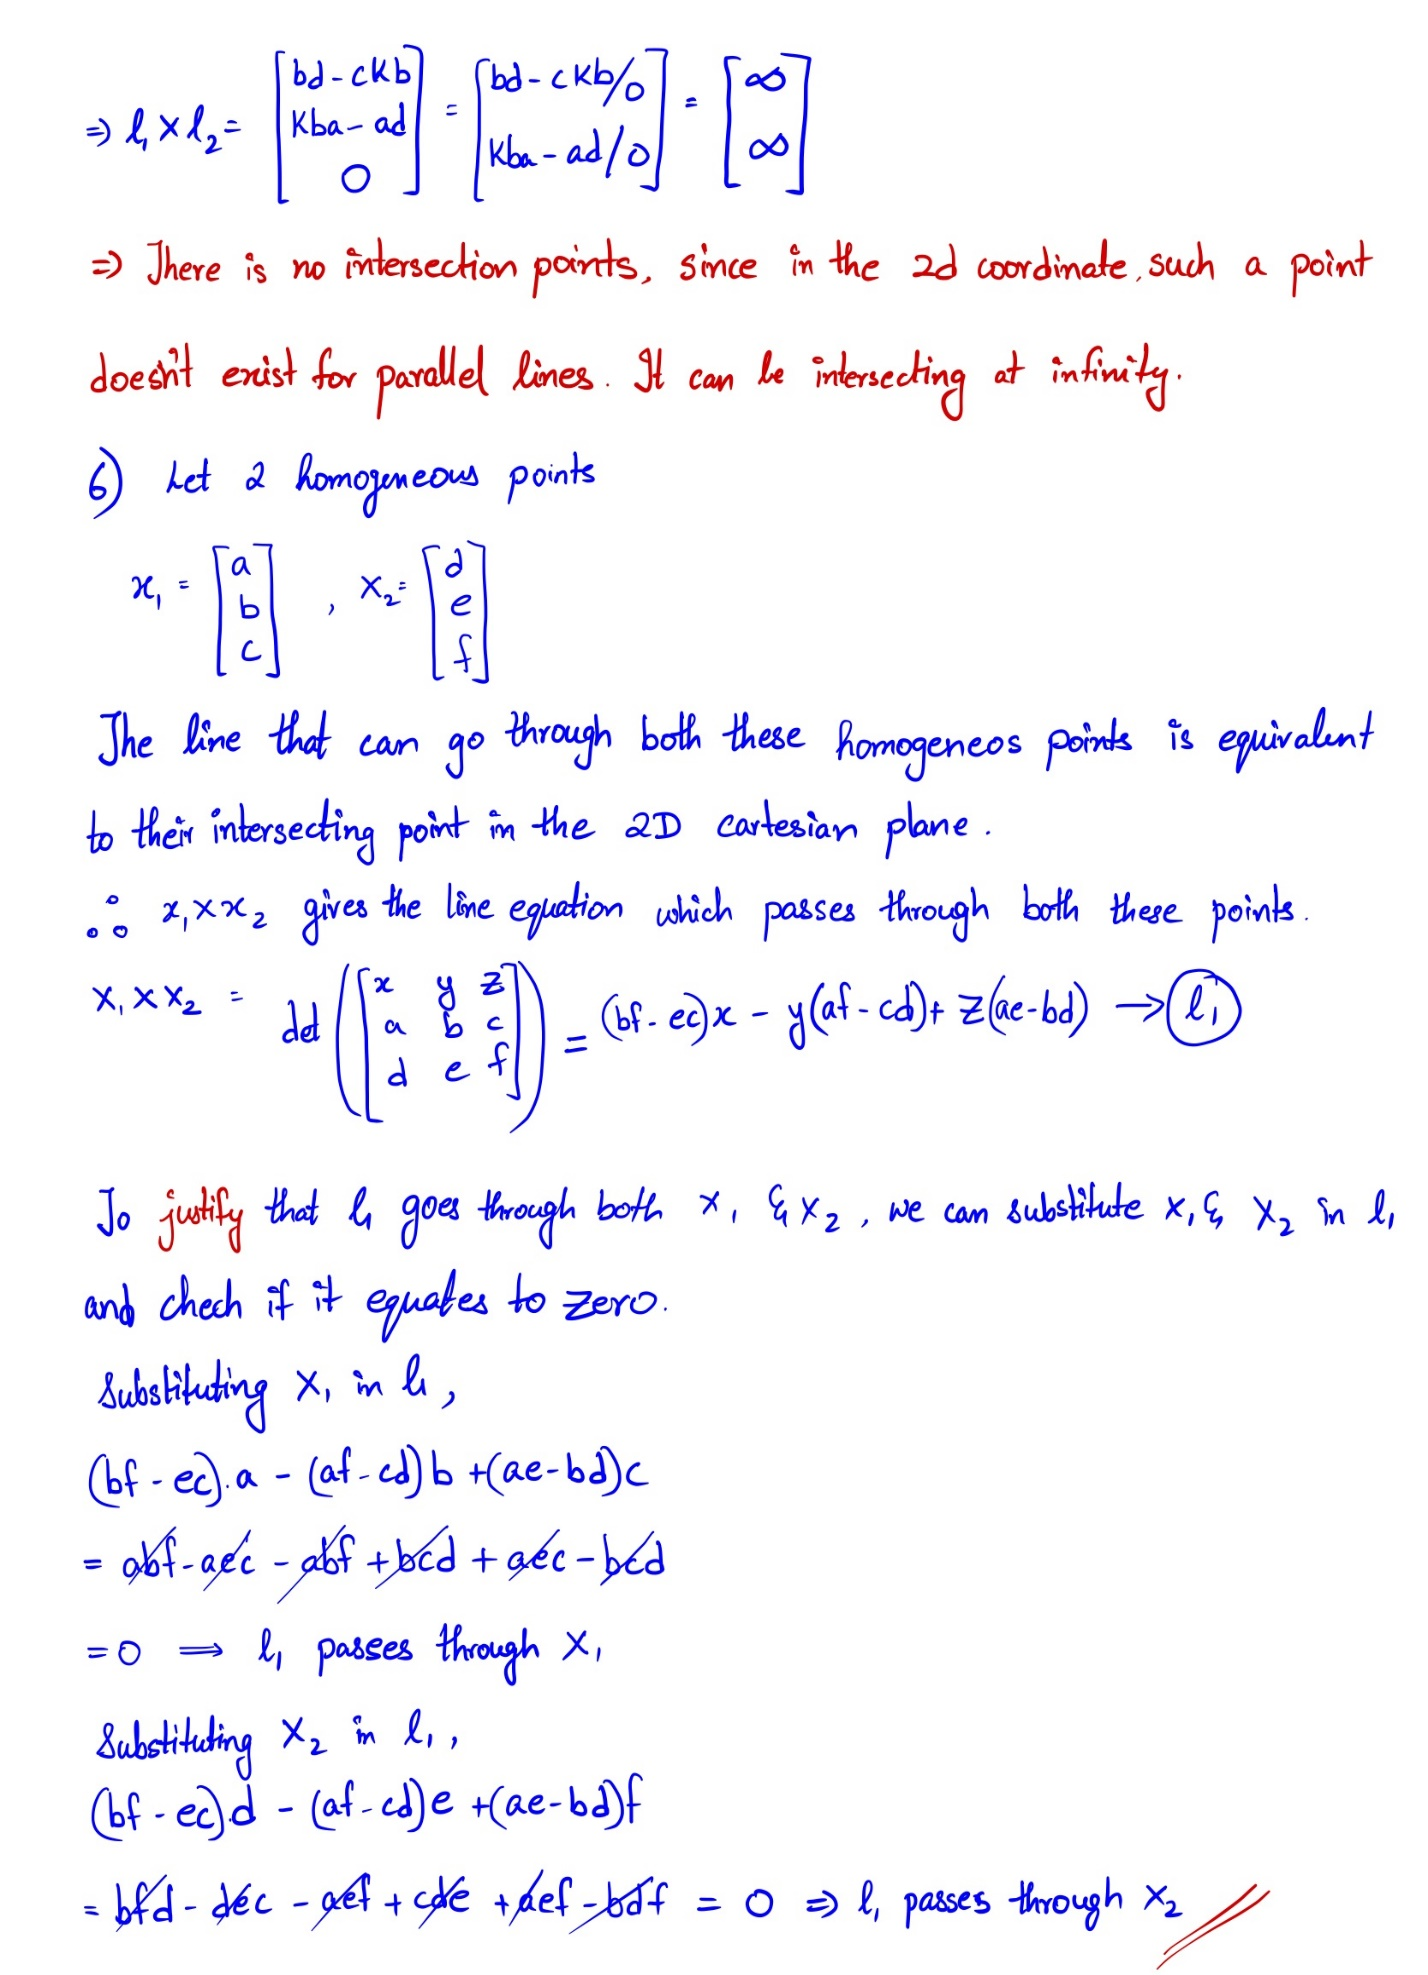 ⇒ l₁ × l₂ = [bd - ckb, kba - ad, 0] = [bd - ckb/0, kba - ad/0] = [∞, ∞]
⇒ There is no intersection points, since in the 2d coordinate, such a point
doesn't exist for parallel lines. It can be intersecting at infinity.
6) Let 2 homogeneous points
x₁ = [a, b, c] , x₂ = [d, e, f]
The line that can go through both these homogeneos points is equivalent
to their intersecting point in the 2D cartesian plane.
∴ x₁ × x₂ gives the line equation which passes through both these points.
x₁ × x₂ = det([x y z; a b c; d e f]) = (bf - ec)x - y(af - cd) + z(ae - bd) → l₁
To justify that l₁ goes through both x₁ & x₂, we can substitute x₁ & x₂ in l₁
and chech if it equates to zero.
Substituting x₁ in l₁,
(bf - ec).a - (af - cd)b + (ae - bd)c
= abf - aec - abf + bcd + aec - bcd
= 0 ⇒ l₁ passes through x₁
Substituting x₂ in l₁,
(bf - ec).d - (af - cd)e + (ae - bd)f
= bfd - dec - aef + cde + aef - bdf = 0 ⇒ l₁ passes through x₂